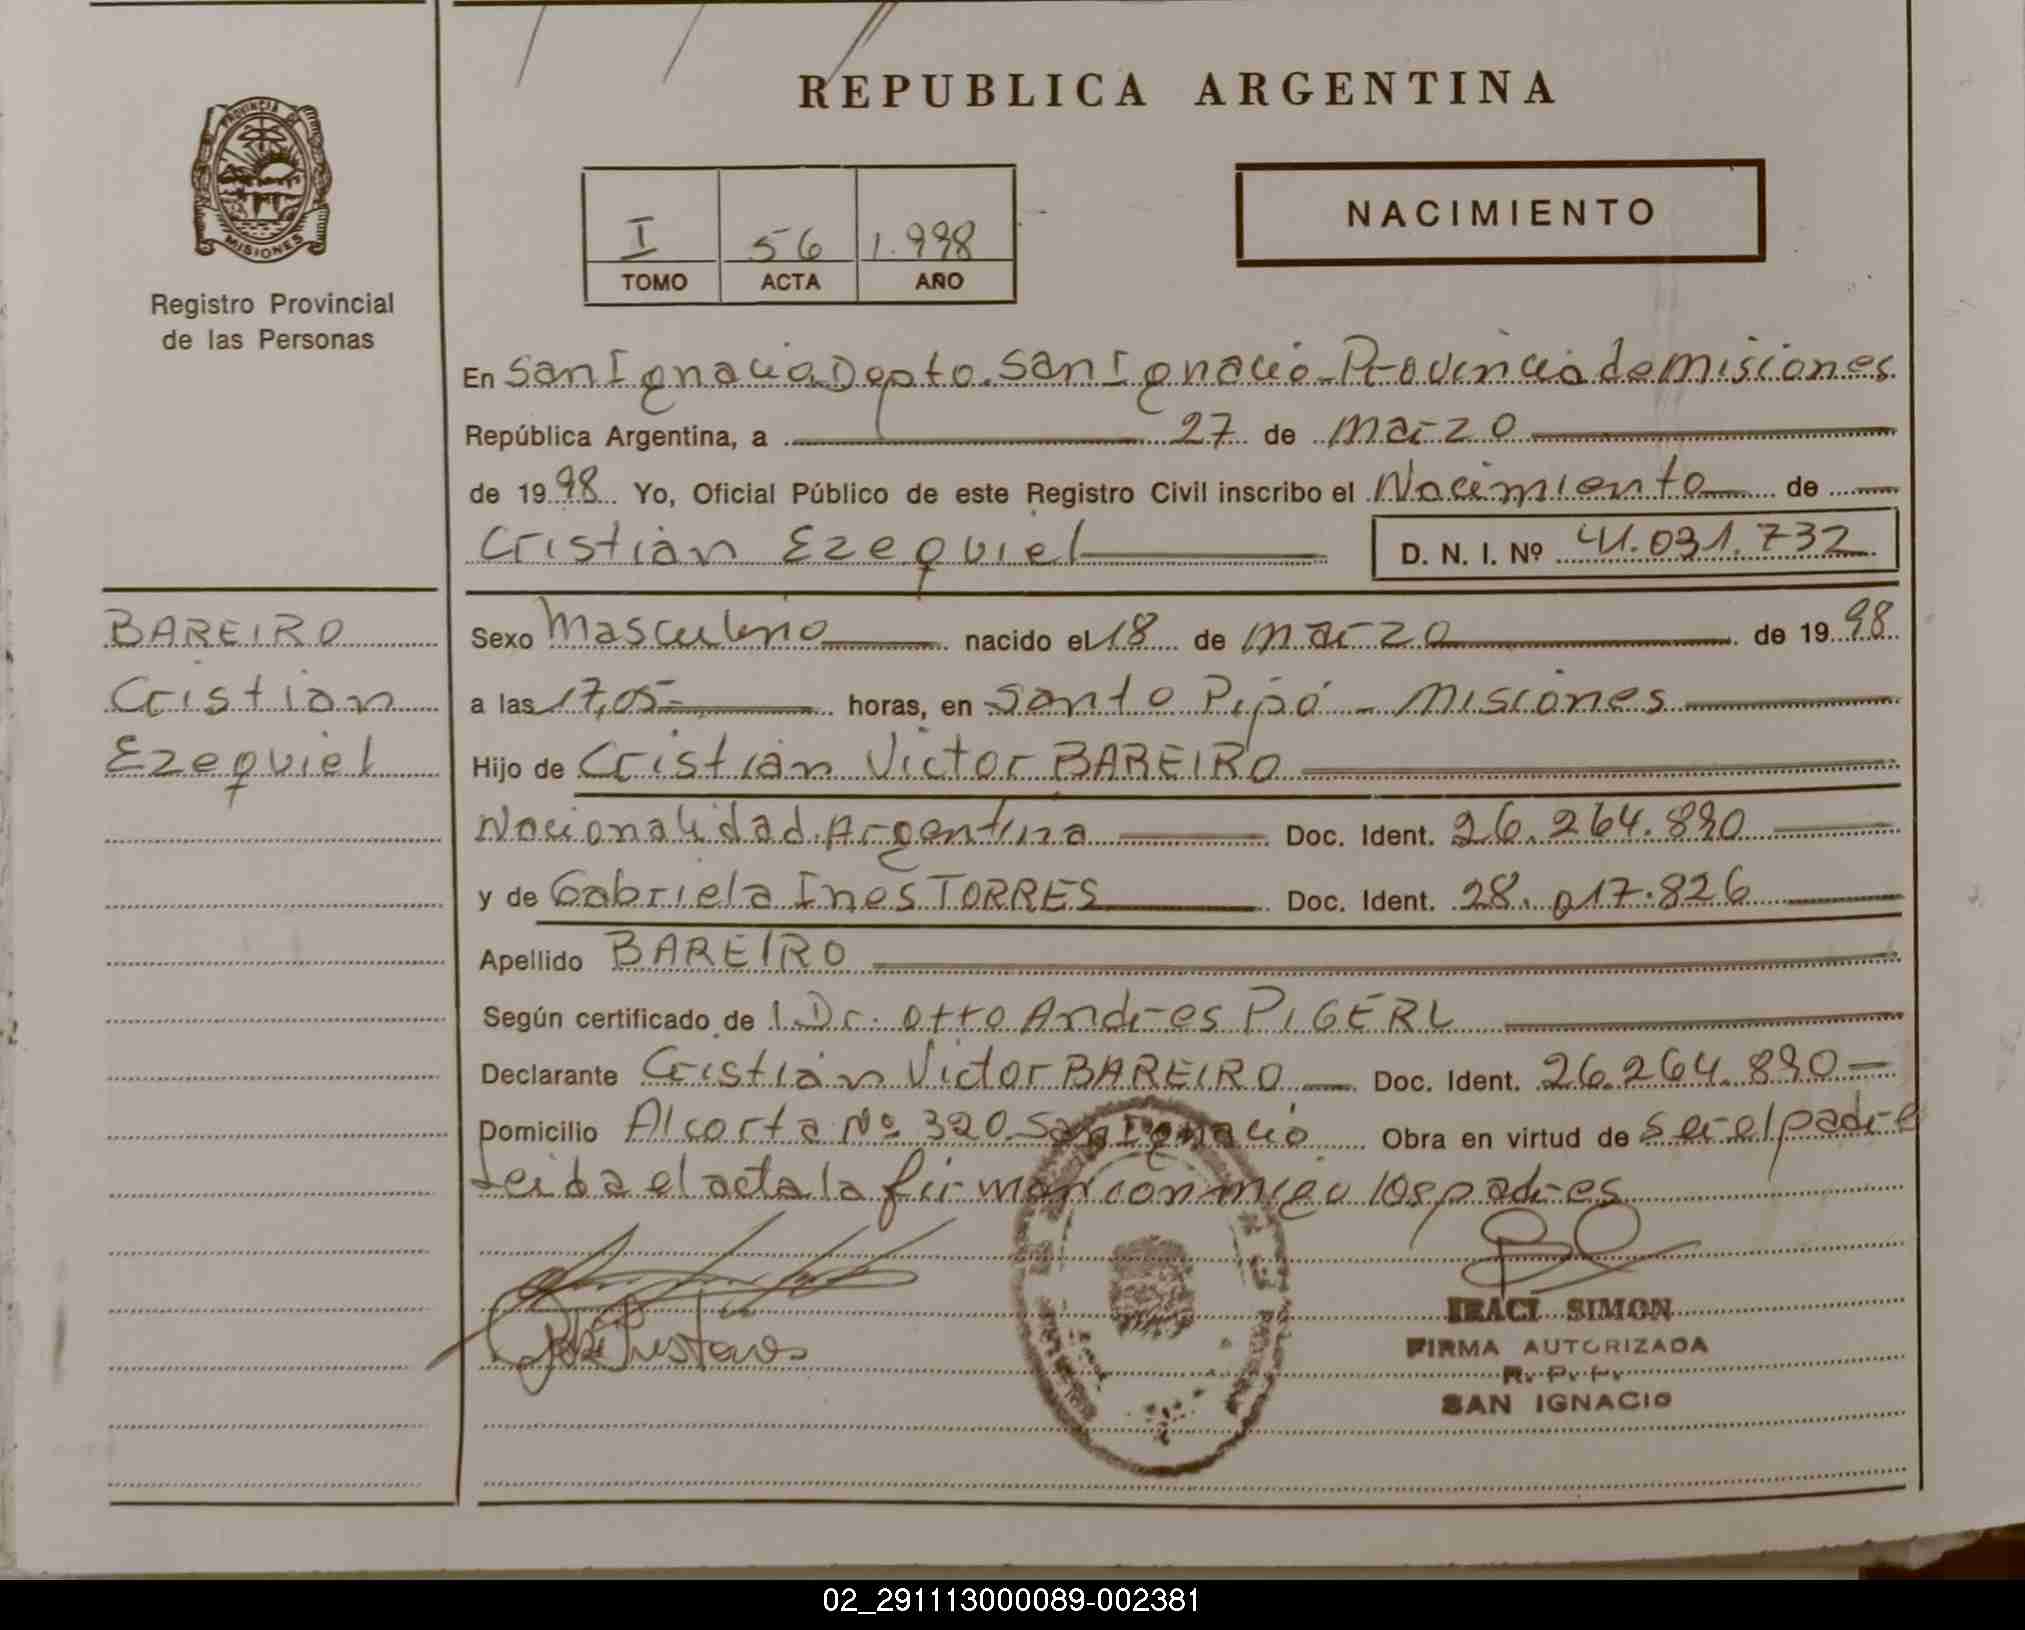 REPUBLICA ARGENTINA
PROVINCIA DE MISIONES
Registro Provincial
de las Personas
I 56 1.998
TOMO ACTA AÑO
NACIMIENTO
En San Ignacio Depto. San Ignacio - Provincia de Misiones
República Argentina, a 27 de Marzo
de 1998 Yo, Oficial Público de este Registro Civil inscribo el Nacimiento de
Cristian Ezequiel D. N. I. Nº 41.031.732
BAREIRO
Cristian
Ezequiel
Sexo Masculino nacido el 18 de Marzo de 1998
a las 17,05 horas, en Santo Pipó - Misiones
Hijo de Cristian Victor BAREIRO
Nacionalidad Argentina Doc. Ident. 26.264.890
y de Gabriela Ines TORRES Doc. Ident. 28.017.826
Apellido BAREIRO
Según certificado de l Dr. Otto Andres PIGERL
Declarante Cristian Victor BAREIRO Doc. Ident. 26.264.890
Domicilio Alcorta Nº 320 San Ignacio Obra en virtud de ser el padre
Leida el acta la firman conmigo los padres
IRACI SIMON
FIRMA AUTORIZADA
R. P. P.
SAN IGNACIO
02_291113000089-002381